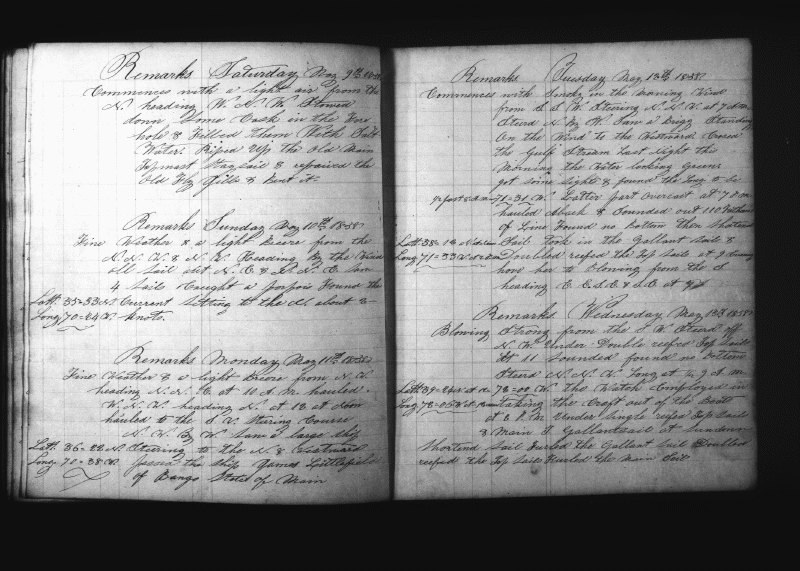 Remarks Saturday May 9th 1858
Commences with a light air from the
N heading W N W Stowed
down Some Cask in the Fore
hole & Filled them With Salt
Water. Riped Up the Old Main
Topmast Staysail & repaired the
Old Fly Gibb & Bent it
Remarks Sunday May 10th 1858
Fine Weather & a light Breese from the
N. N. W. & N. W. Heading By the Wind
all Sail Set N. E & N. N. E Saw
4 Sails Caught a porpois Found the
Latt 35=53 N Current Setting to the N about 2
Long 70=24 W knots.
Remarks Monday May 11th 1858
Fine Weather & a light Breese from N. W.
heading N. N. E. at 10 A m hauled
W. N. W. heading N. at 12 at Noon
hauled to the S W Stering Course
N. W. By W. Saw a large Ship
Latt. 36=22 N Stering to the N. & Eastward
Long 70=38 W passed the Ship James Littlefield
of Bango State of Main
Remarks Tuesday May 12th 1858
Commences with Smoky in the Morning Wind
from S S W Stering N. N. W. at 7 A m
Steerd N By W. Saw a Brigg Standing
On the Wind to the Westward Crosed
the Gulf Stream Last Night this
Morning the Water looking Green
got Some Sights & found the Long to be
71=31 W. Latter part Overcast at 7 P m
hauled Aback & Sounded out 110 Fathoms
of Line Found no bottom then Shortend
Latt 38=18 N Sail took in the Gallant Sail &
Long 71=33 W Doubled reefed the Top Sails at 9
hove her to Blowing from the S
heading E. E.S.E & S.E at
Remarks Wednesday May 13th 1858
Blowing Strong from the S W Steerd off
N. W. Under Double reefed Top Sails
At 11 Sounded found no bottom
Steerd N. N. W. Long at 4 P. m
Latt 39=24 72=00 W. the Watch Employed in
Long 72=05 Taking the Craft out of the Boats
at 2 P. M Under Single reefed Top Sails
& Main T Gallantsail at Sundown
Shortend Sail Furled the Gallant Sail Doubled
reefed the Top Sails Furled the Main Sail